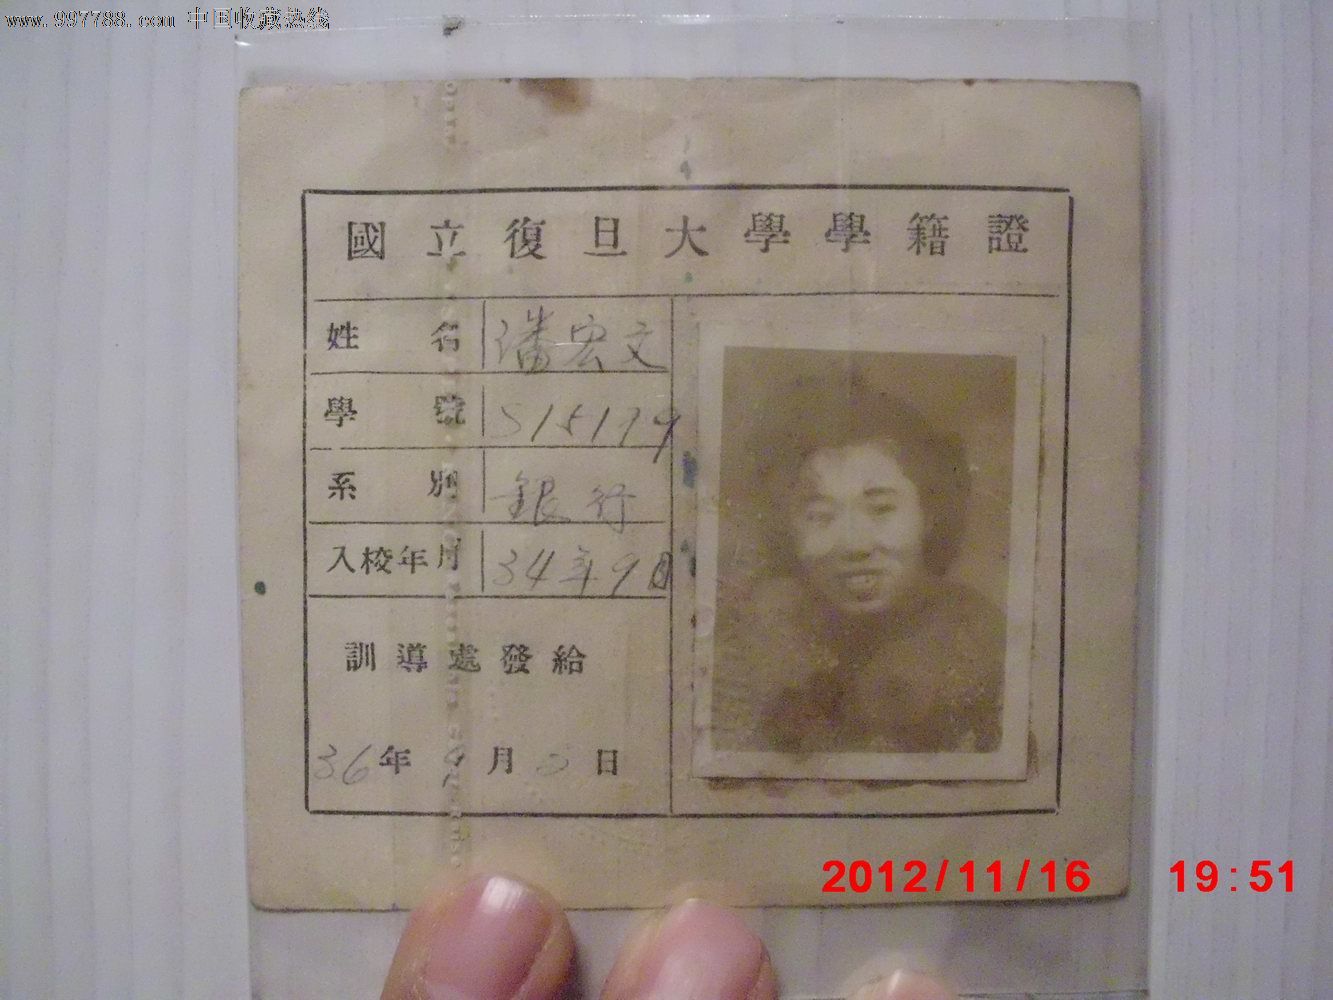 www.997788.com 中国收藏热线
國立復旦大學學籍證
姓名 潘宏文
學號 S15179
系別 銀行
入校年月 34年9月
訓導處發給
36年 月 日
2012/11/16 19:51